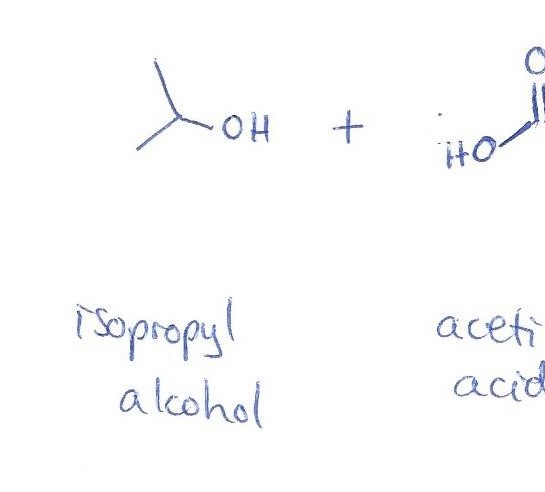 O
OH + HO
isopropyl aceti
alcohol acid